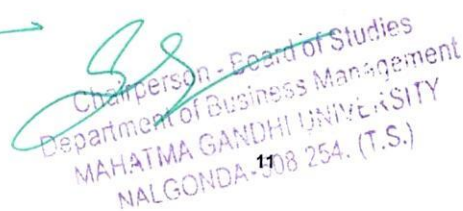 Chairperson - Board of Studies
Department of Business Management
MAHATMA GANDHI UNIVERSITY
NALGONDA-508 254. (T.S.)
11